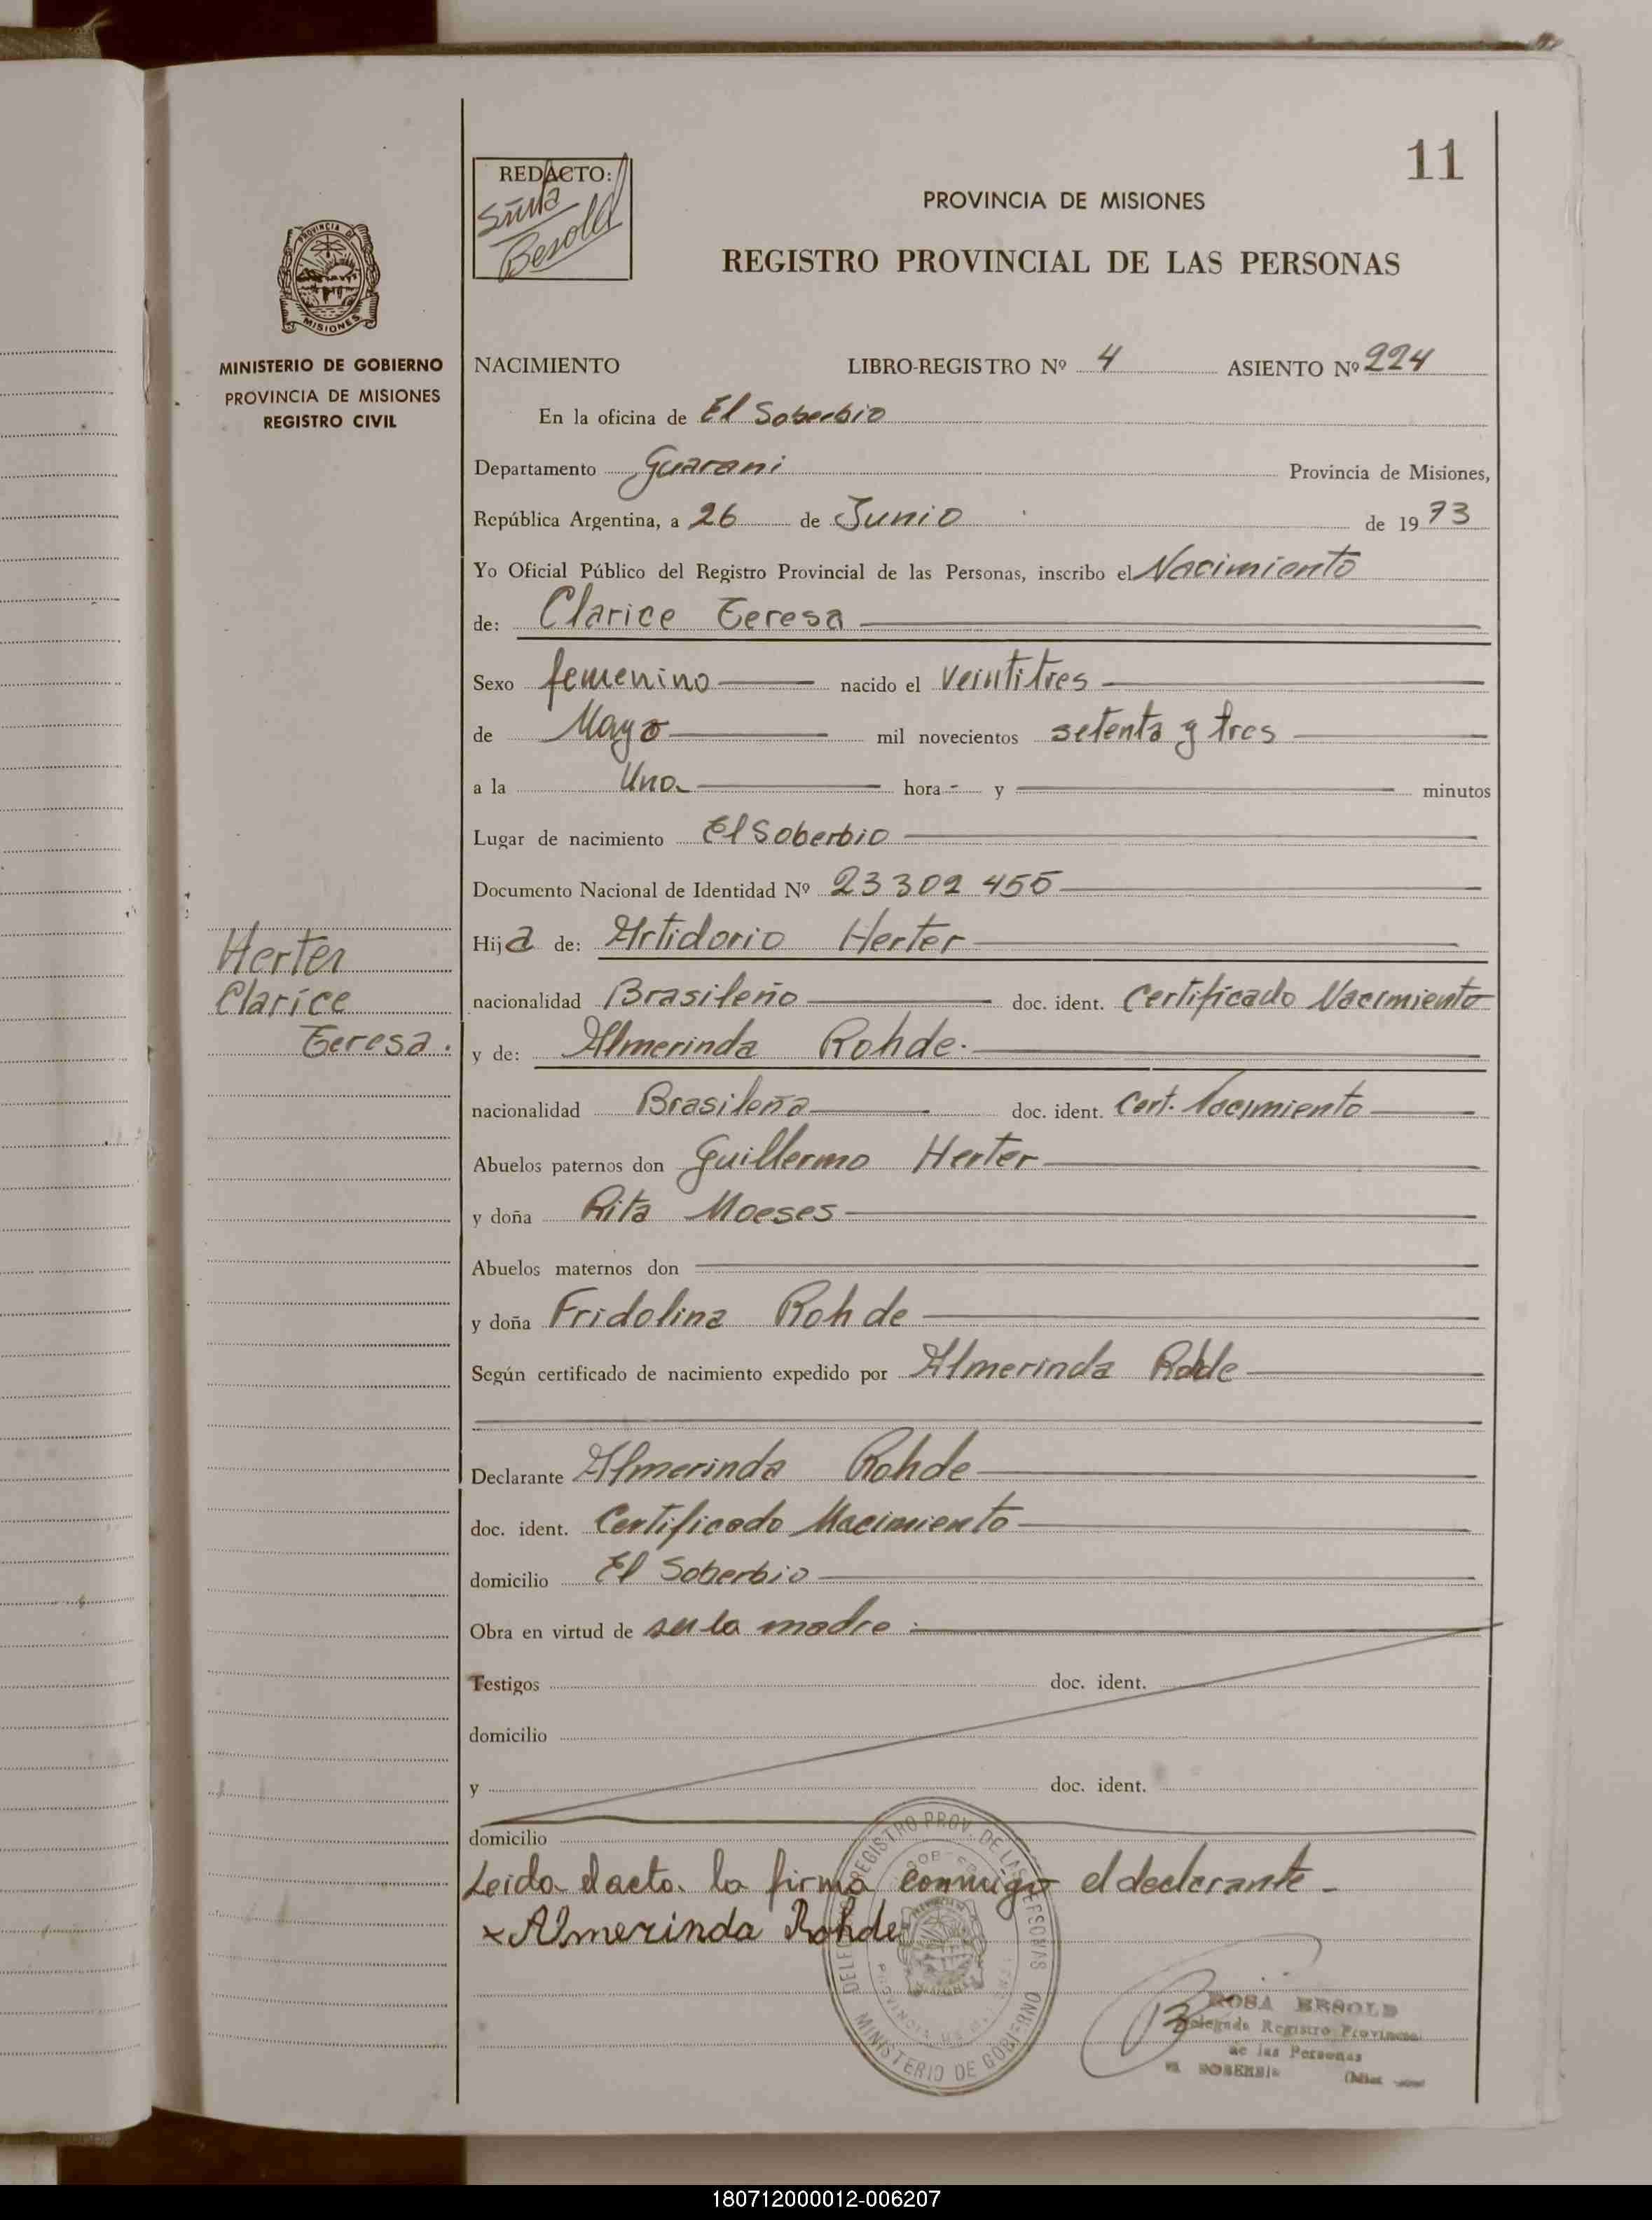 11
REDACTO:
Besold
PROVINCIA DE MISIONES
REGISTRO PROVINCIAL DE LAS PERSONAS
PROVINCIA DE
MISIONES
MINISTERIO DE GOBIERNO
PROVINCIA DE MISIONES
REGISTRO CIVIL
NACIMIENTO LIBRO-REGISTRO Nº 4 ASIENTO Nº 224
En la oficina de El Soberbio
Departamento Guarani Provincia de Misiones,
República Argentina, a 26 de Junio de 1973
Yo Oficial Público del Registro Provincial de las Personas, inscribo el Nacimiento
de: Clarice Teresa
Sexo femenino nacido el veintitres
de Mayo mil novecientos setenta y tres
a la Una hora - y minutos
Lugar de nacimiento El Soberbio
Documento Nacional de Identidad Nº 23 302 455
Hija de: Artidorio Herter
nacionalidad Brasileño doc. ident. Certificado Nacimiento
y de: Almerinda Rohde.
nacionalidad Brasileña doc. ident. Cert. Nacimiento
Abuelos paternos don Guillermo Herter
y doña Rita Moeses
Abuelos maternos don
y doña Fridolina Rohde
Según certificado de nacimiento expedido por Almerinda Rohde
Declarante Almerinda Rohde
doc. ident. Certificado Nacimiento
domicilio El Soberbio
Obra en virtud de ser la madre
Testigos doc. ident.
domicilio
y doc. ident.
domicilio
Leida el acto. la firma conmigo el declarante -
x Almerinda Rohde
Herter
Clarice
Teresa.
REGISTRO PROV. DE LAS PERSONAS
MINISTERIO DE GOBIERNO
ROSA BESOLD
Delegada Registro Provincial
de las Personas
EL SOBERBIO
180712000012-006207